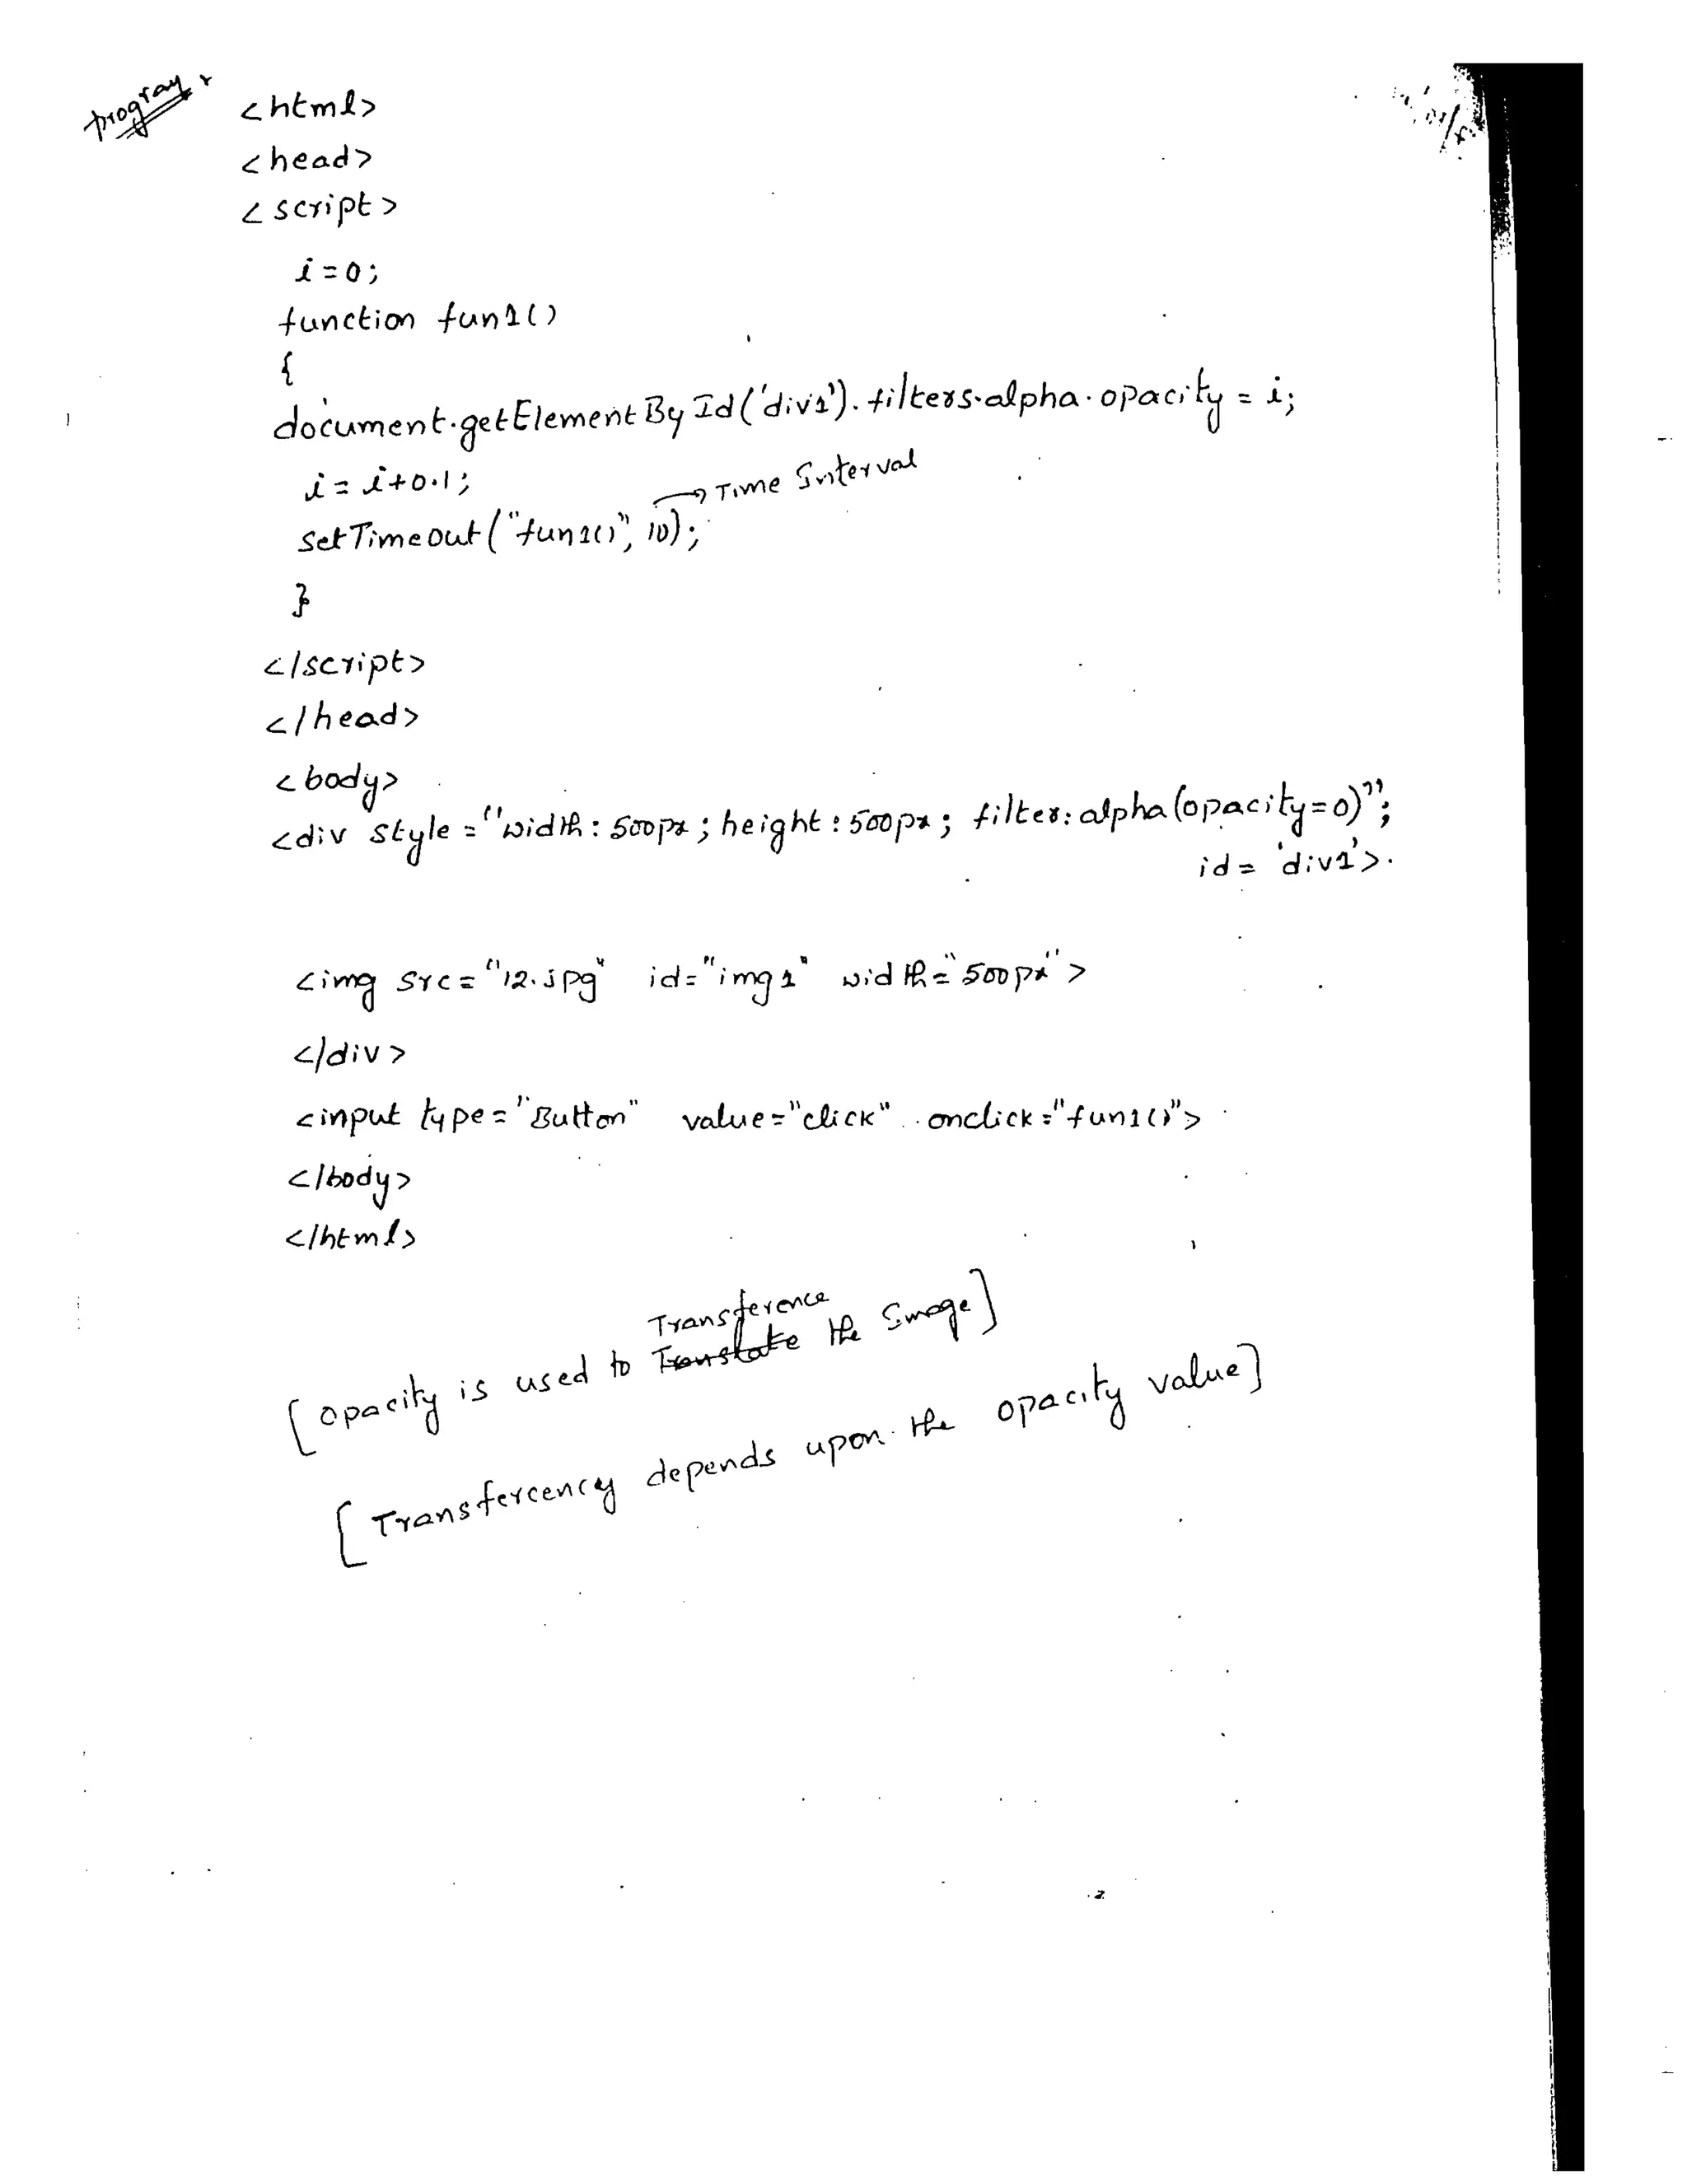 program
<html>
<head>
<script>
i=0;
function fun1()
{
document.getElementById('div1').filters.alpha.opacity = i;
i = i+0.1;
→ Time Interval
setTimeout("fun1()", 10);
}
</script>
</head>
<body>
<div style="width: 500px; height: 500px; filter: alpha(opacity=0)";
id= 'div1'>.
<img src="12.jpg" id="img1" width="500px">
</div>
<input type="Button" value="click" onclick="fun1()">
</body>
</html>
Transference
[opacity is used to Translate the Image]
[Transfercency depends upon the opacity value]